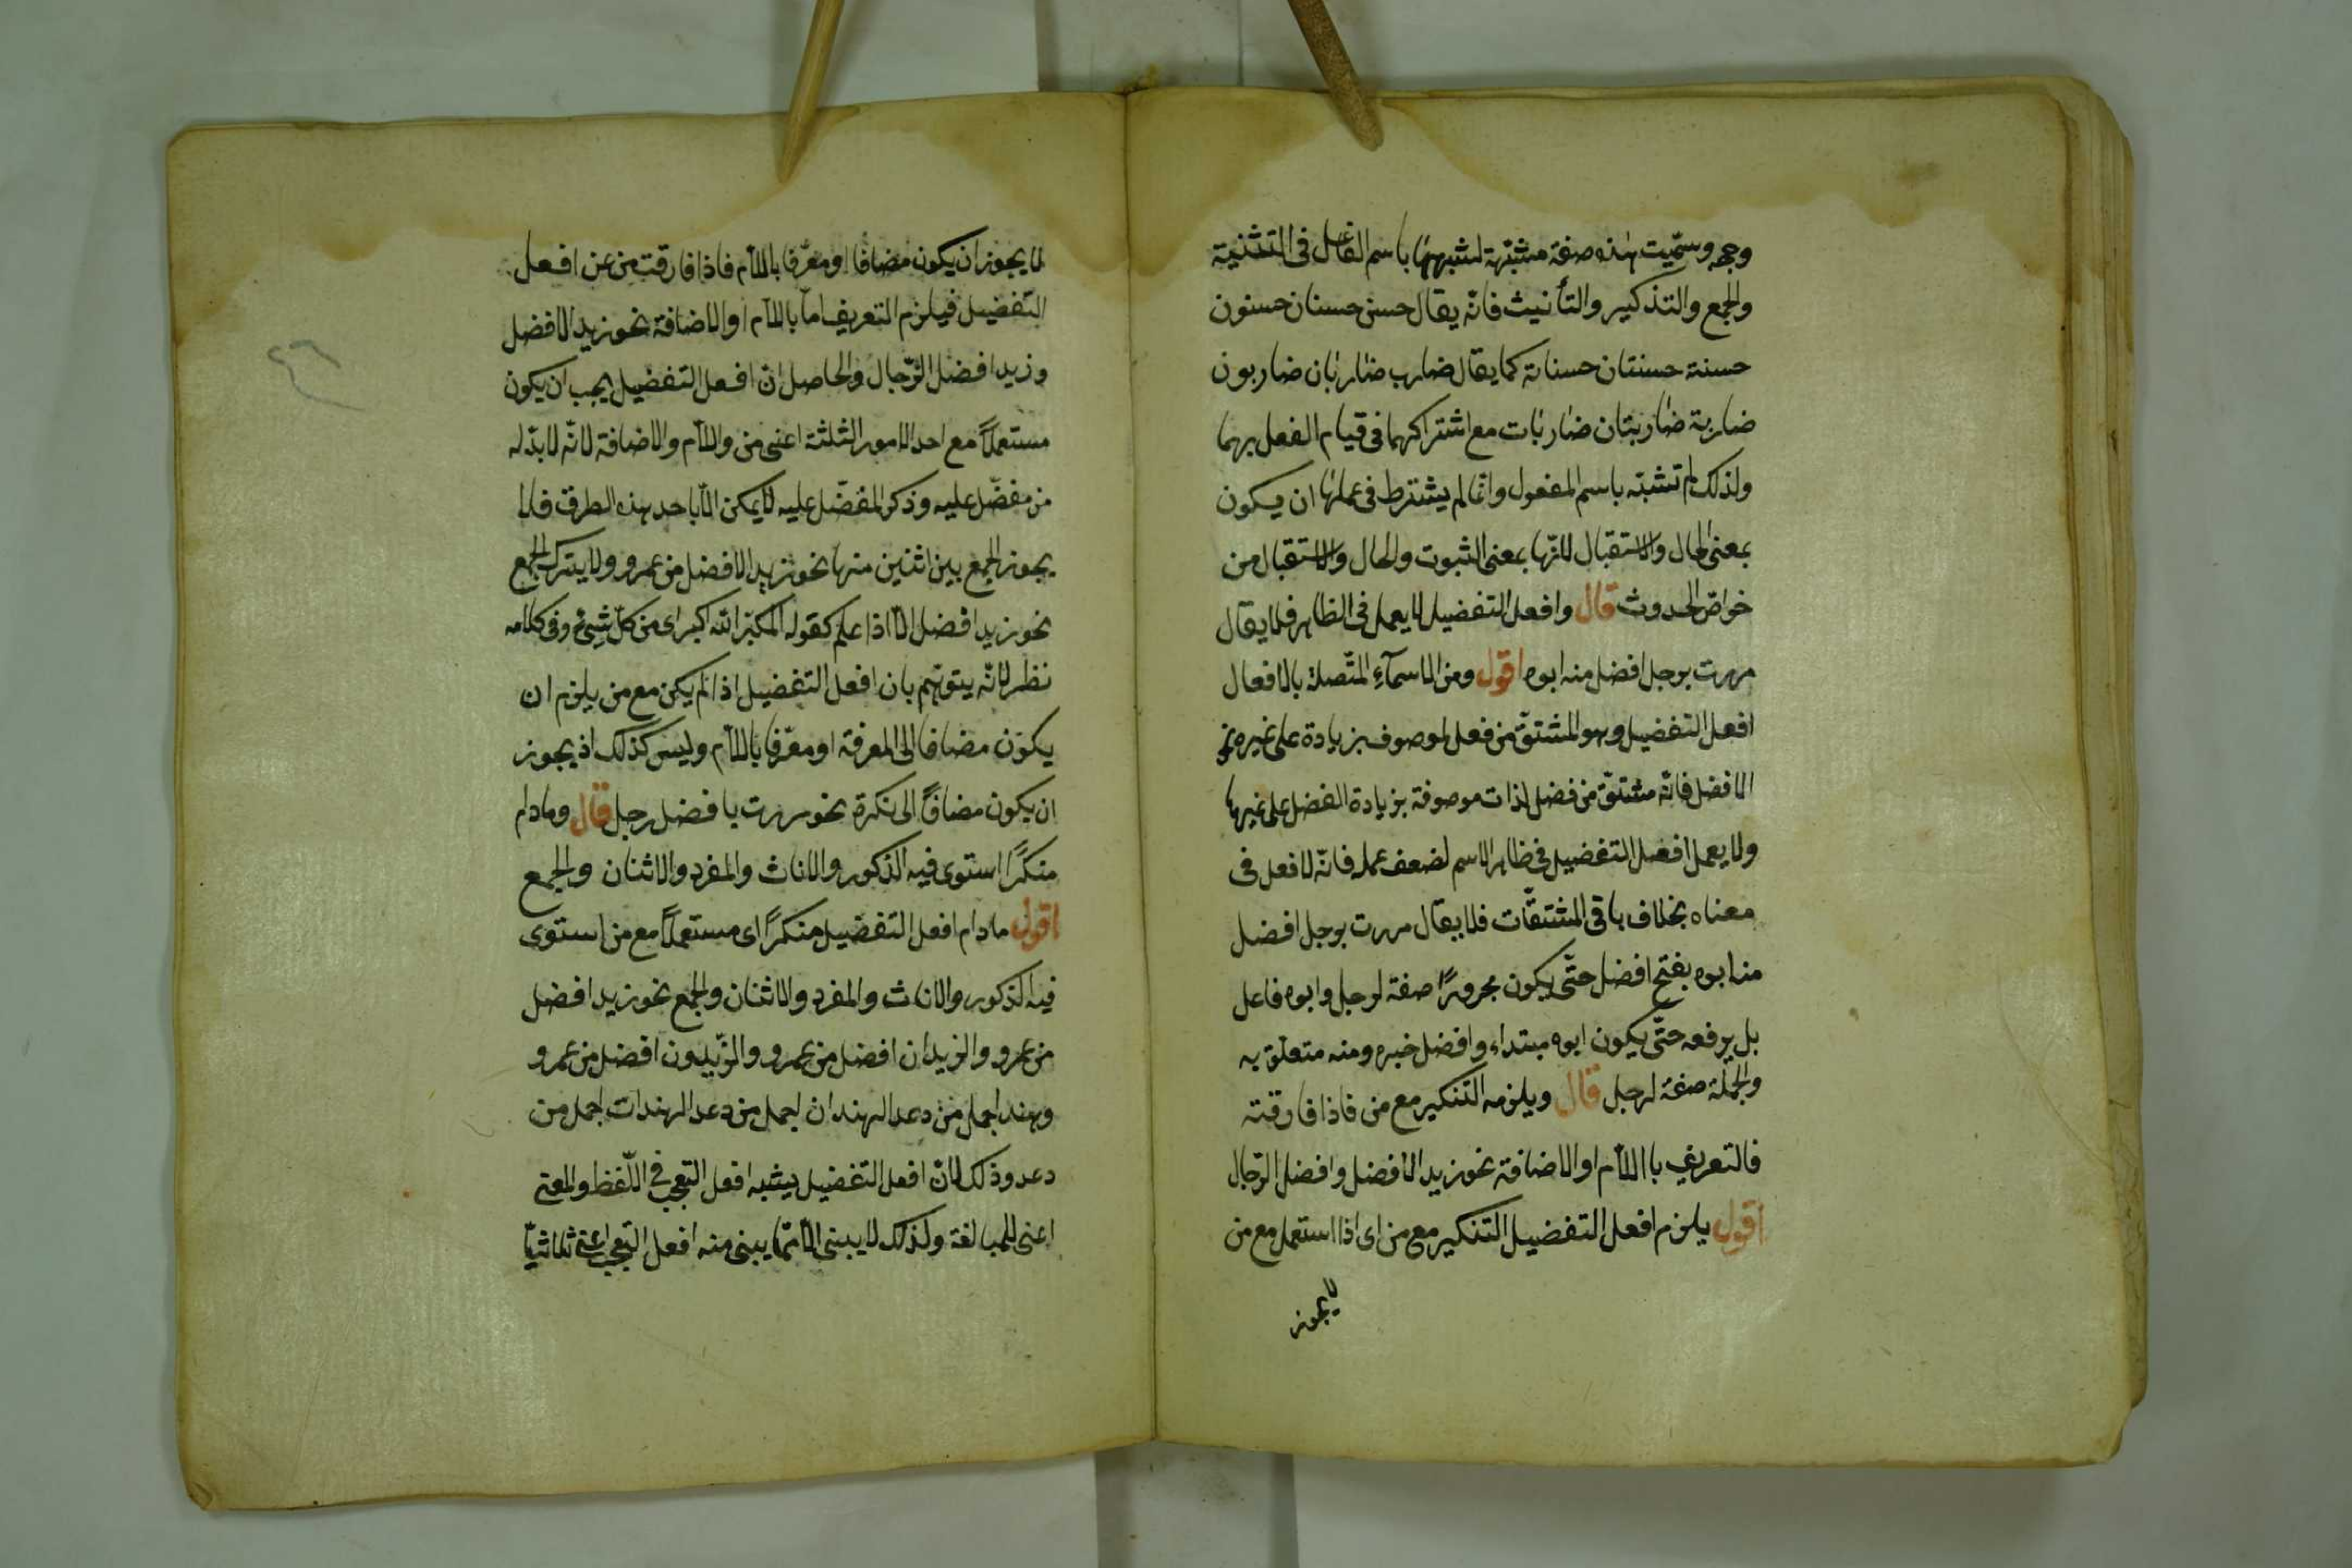 وجهه وسمّيت هذه صفة مشبّهة لشبهها باسم الفاعل فى التثنية
والجمع والتذكير والتأنيث فانّه يقال حسن حسنان حسنون
حسنة حسنتان حسنات كما يقال ضارب ضاربان ضاربون
ضاربة ضاربتان ضاربات مع اشتراكهما فى قيام الفعل بهما
ولذلك لم تشبّه باسم المفعول وانّما لم يشترط فى عملها ان يكون
بمعنى الحال والاستقبال لانّها بمعنى الثبوت والحال والاستقبال من
خواصّ الحدوث قال وافعل التفضيل لا يعمل فى الظاهر فلا يقال
مررت برجل افضل منه ابوه اقول ومن الاسمآء المتّصلة بالافعال
افعل التفضيل وهو المشتقّ من فعل لموصوف بزيادة على غيره نحو
الافضل فانّه مشتقّ من فضل لذات موصوفة بزيادة الفضل على غيرها
ولا يعمل افعل التفضيل فى ظاهر الاسم لضعف عمله فانّه لا فعل فى
معناه بخلاف باقى المشتقّات فلا يقال مررت برجل افضل
منه ابوه بفتح افضل حتّى يكون مجرورًا صفة لرجل وابوه فاعل
بل يرفعه حتّى يكون ابوه مبتداء وافضل خبره ومنه متعلّق به
والجملة صفة لرجل قال ويلزمه التنكير مع من فاذا فارقته
فالتعريف باللام او الاضافة نحو زيد الافضل وافضل الرّجال
اقول يلزم افعل التفضيل التنكير مع من اى اذا استعمل مع من
لا يجوز
لا يجوز ان يكون مضافا او معرّفا باللام فاذا فارقت من عن افعل
التّفضيل فيلزم التعريف امّا باللام او الاضافة نحو زيد الافضل
وزيد افضل الرّجال والحاصل انّ افعل التفضيل يجب ان يكون
مستعملاً مع احد الامور الثلثة اعنى من واللام والاضافة لانّه لا بدّ له
من مفضّل عليه وذكر المفضّل عليه لا يمكن الّا باحد هذه الطرق فلا
يجوز الجمع بين اثنين منها نحو زيد الافضل من عمرو ولا يترك الجمع
نحو زيد افضل الّا اذا علم كقوله المكبّر الله اكبر اى من كلّ شىء وفى كلامه
نظر لانّه يتوهّم بان افعل التفضيل اذا لم يكن مع من يلزم ان
يكون مضافا الى المعرفة او معرّفا باللام وليس كذلك اذ يجوز
ان يكون مضافًا الى نكرة نحو مررت بافضل رجل قال ومادام
منكرًا استوى فيه الذكور والاناث والمفرد والاثنان والجمع
اقول مادام افعل التفضيل منكرًا اى مستعملاً مع من استوى
فيه الذكور والاناث والمفرد والاثنان والجمع نحو زيد افضل
من عمرو والزيدان افضل من عمرو والزّيدون افضل من عمرو
وهند اجمل من دعد الهندان اجمل من دعد الهندات اجمل من
دعد وذلك لانّ افعل التفضيل يشبه افعل التعجب فى اللّفظ والمعنى
اعنى المبالغة ولذلك لا يبنى الّا ممّا يبنى منه افعل التعجب اعنى ثلاثيّا